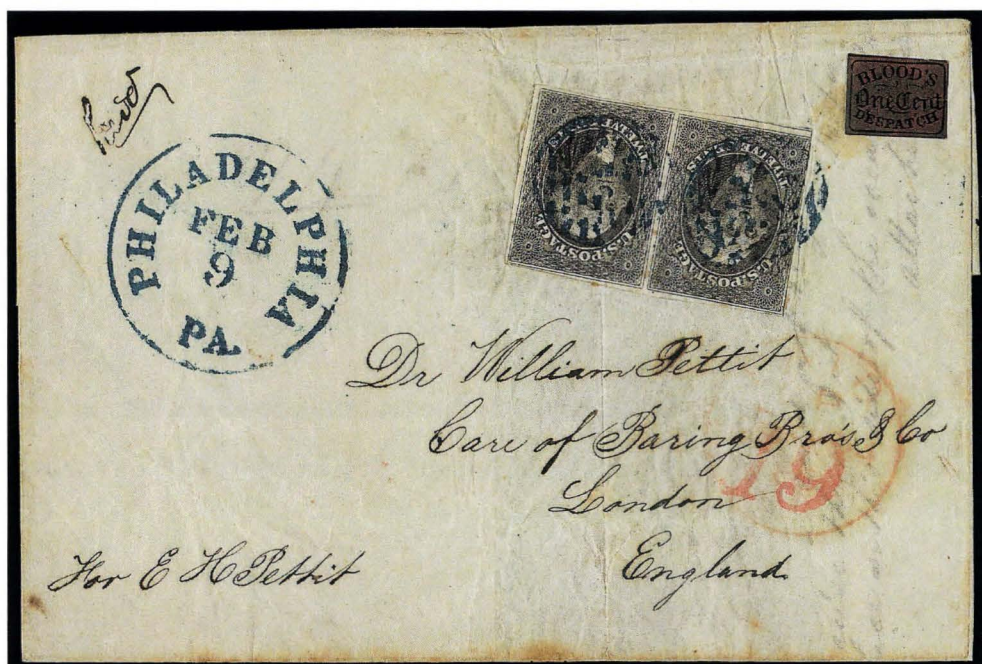 Paid
BLOOD'S
One Cent
DESPATCH
PHILADELPHIA
FEB
9
PA.
U.S. POSTAGE
U.S. POSTAGE
Dr William Pettit
Care of Baring Bro's & Co
London
England
19
For E H Pettit